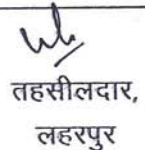 तहसीलदार,
लहरपुर